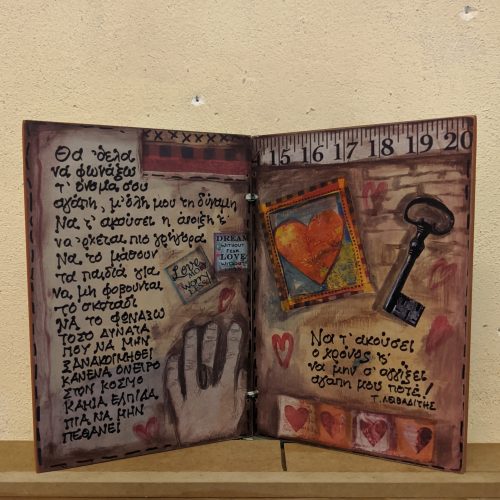 Θα 'θελα
να φωνάξω
τ' όνομα σου
αγάπη, μ' όλη μου τη δύναμη
Να τ' ακούσει η άνοιξη κ'
να 'ρχεται πιο γρήγορα
Να το μάθουν
τα παιδιά για
να μη φοβούνται
το σκοτάδι
ΝΑ ΤΟ ΦΩΝΑΞΩ
ΤΟΣΟ ΔΥΝΑΤΑ
ΠΟΥ ΝΑ ΜΗΝ
ΞΑΝΑΚΟΙΜΗΘΕΙ
ΚΑΝΕΝΑ ΟΝΕΙΡΟ
ΣΤΟΝ ΚΟΣΜΟ
ΚΑΜΙΑ ΕΛΠΙΔΑ
ΠΙΑ ΝΑ ΜΗΝ
ΠΕΘΑΝΕΙ
DREAM
WITHOUT
FEAR
LOVE
WITHOUT
Love
15 16 17 18 19 20
Να τ' ακούσει
ο χρόνος κ'
να μην σ' αγγίξει
αγάπη μου ποτέ!
Τ. ΛΕΙΒΑΔΙΤΗΣ